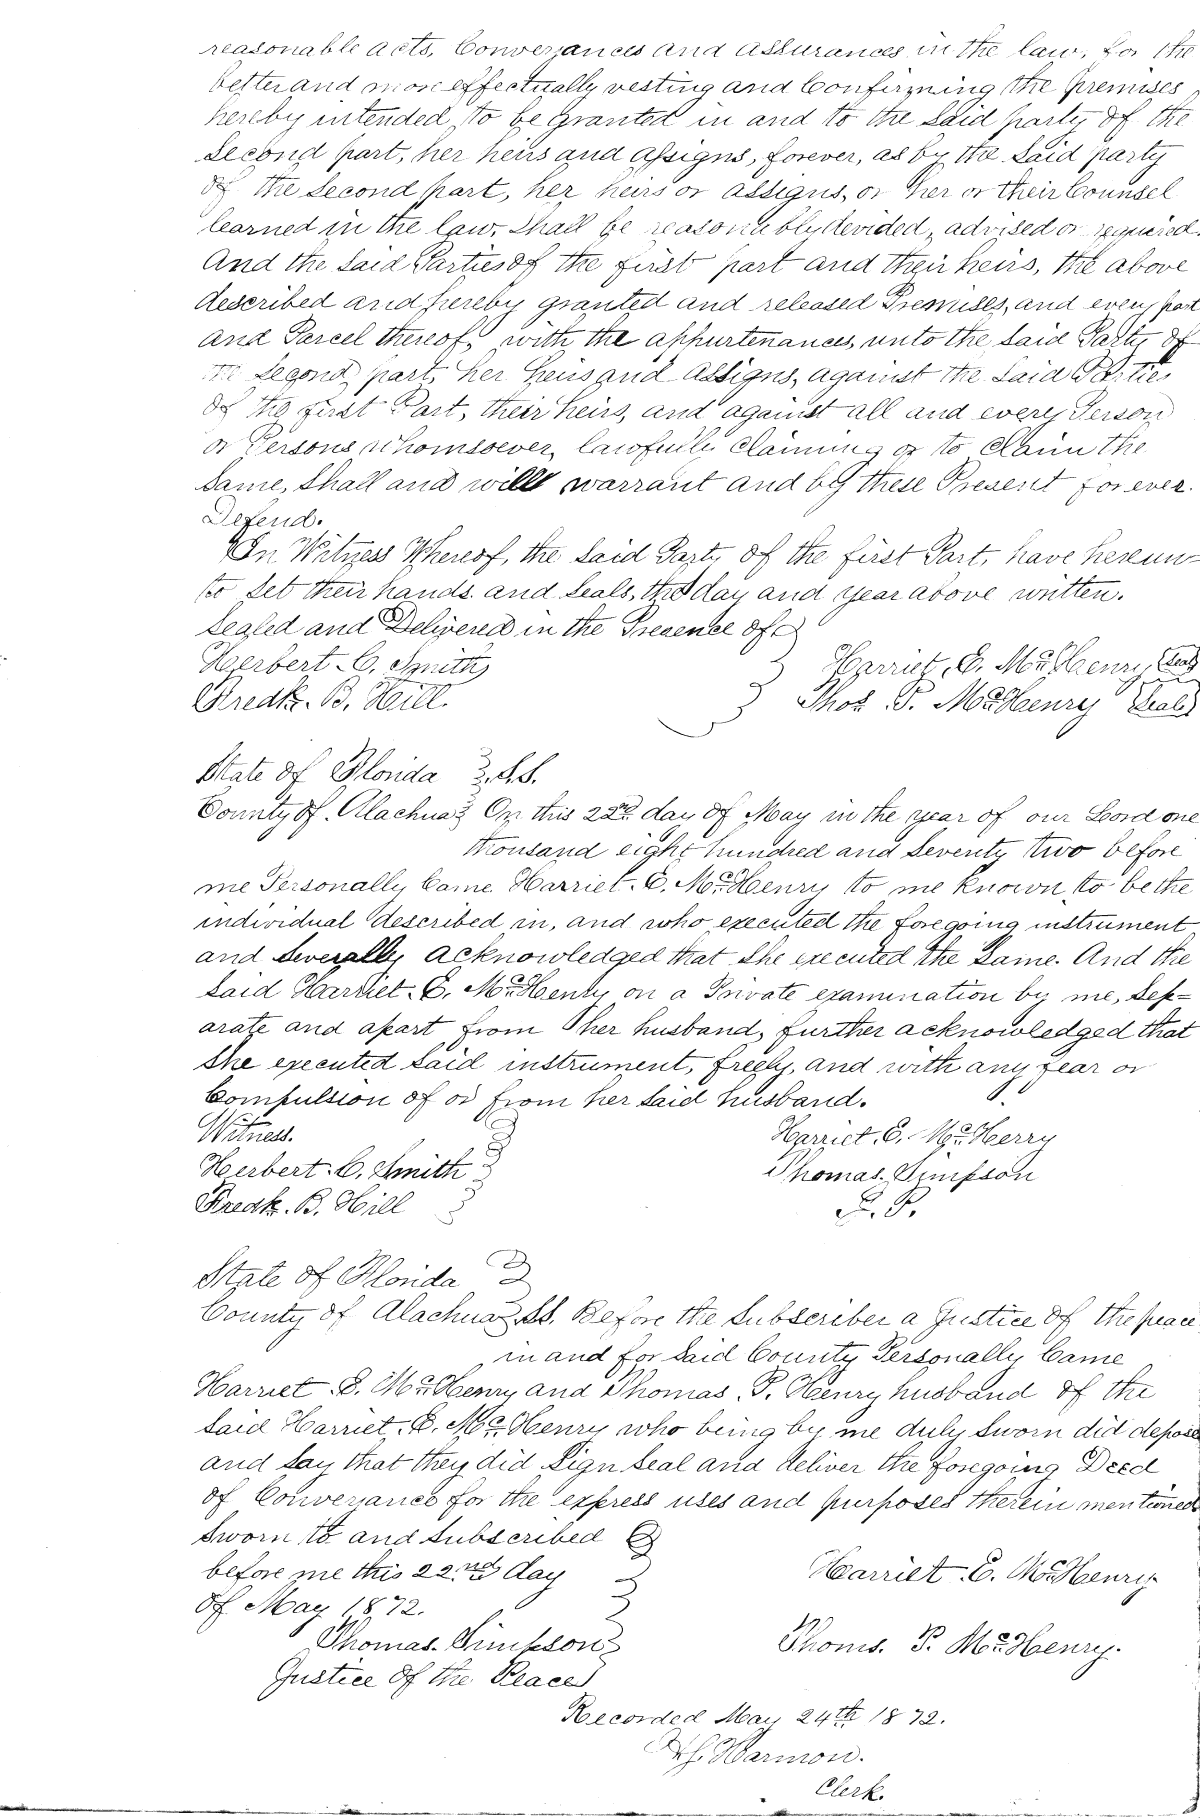 reasonable acts, Conveyances and assurances in the law, for the
better and more effectually vesting and Confirming the premises
hereby intended to be granted in and to the Said party of the
Second part, her heirs and assigns, forever, as by the Said party
of the Second part, her heirs or assigns, or her or their Counsel
learned in the law, Shall be reasonably devided, advised or required.
And the Said Parties of the first part and their heirs, the above
described and hereby granted and released Premises, and every part
and Parcel thereof, with the appurtenances, unto the Said Party of
the Second part, her heirs and assigns, against the Said Parties
of the first Part, their heirs, and against all and every Person
or Persons whomsoever, lawfully Claiming or to Claim the
Same, Shall and will warrant and by these Present forever.
Defend.
In Witness Whereof, the Said Party of the first Part, have hereun-
to Set their hands and Seals, the day and year above written.
Sealed and Delivered in the Presence of
Herbert. C. Smith Harriet. E. McHenry Seal
Fredk. B. Hill. Thos. P. McHenry Seal
State of Florida S.S.
County of Alachua On this 22nd day of May in the year of our Lord one
thousand eight hundred and Seventy two before
me Personally Came Harriet. E. McHenry to me known, to be the
individual described in, and who executed the foregoing instrument
and Severally acknowledged that She executed the Same. And the
Said Harriet. E. McHenry on a Private examination by me, Sep=
arate and apart from her husband, further acknowledged that
She executed Said instrument, freely, and with any fear or
Compulsion of or from her Said husband.
Witness. Harriet. E. McHerry
Herbert. C. Smith Thomas. Simpson
Fredk. B. Hill J. P.
State of Florida
County of Alachua SS. Before the Subscriber a Justice of the peace
in and for Said County Personally Came
Harriet. E. McHenry and Thomas. P. Henry husband of the
Said Harriet. E. McHenry who being by me duly Sworn did depose
and Say that they did Sign Seal and deliver the foregoing Deed
of Conveyance for the express uses and purposes therein mentioned
Sworn to and Subscribed
before me this 22nd day Harriet. E. McHenry
of May 1872.
Thomas. Simpson Thoms. P. McHenry.
Justice of the Peace
Recorded May 24th 1872.
Harmon.
Clerk.